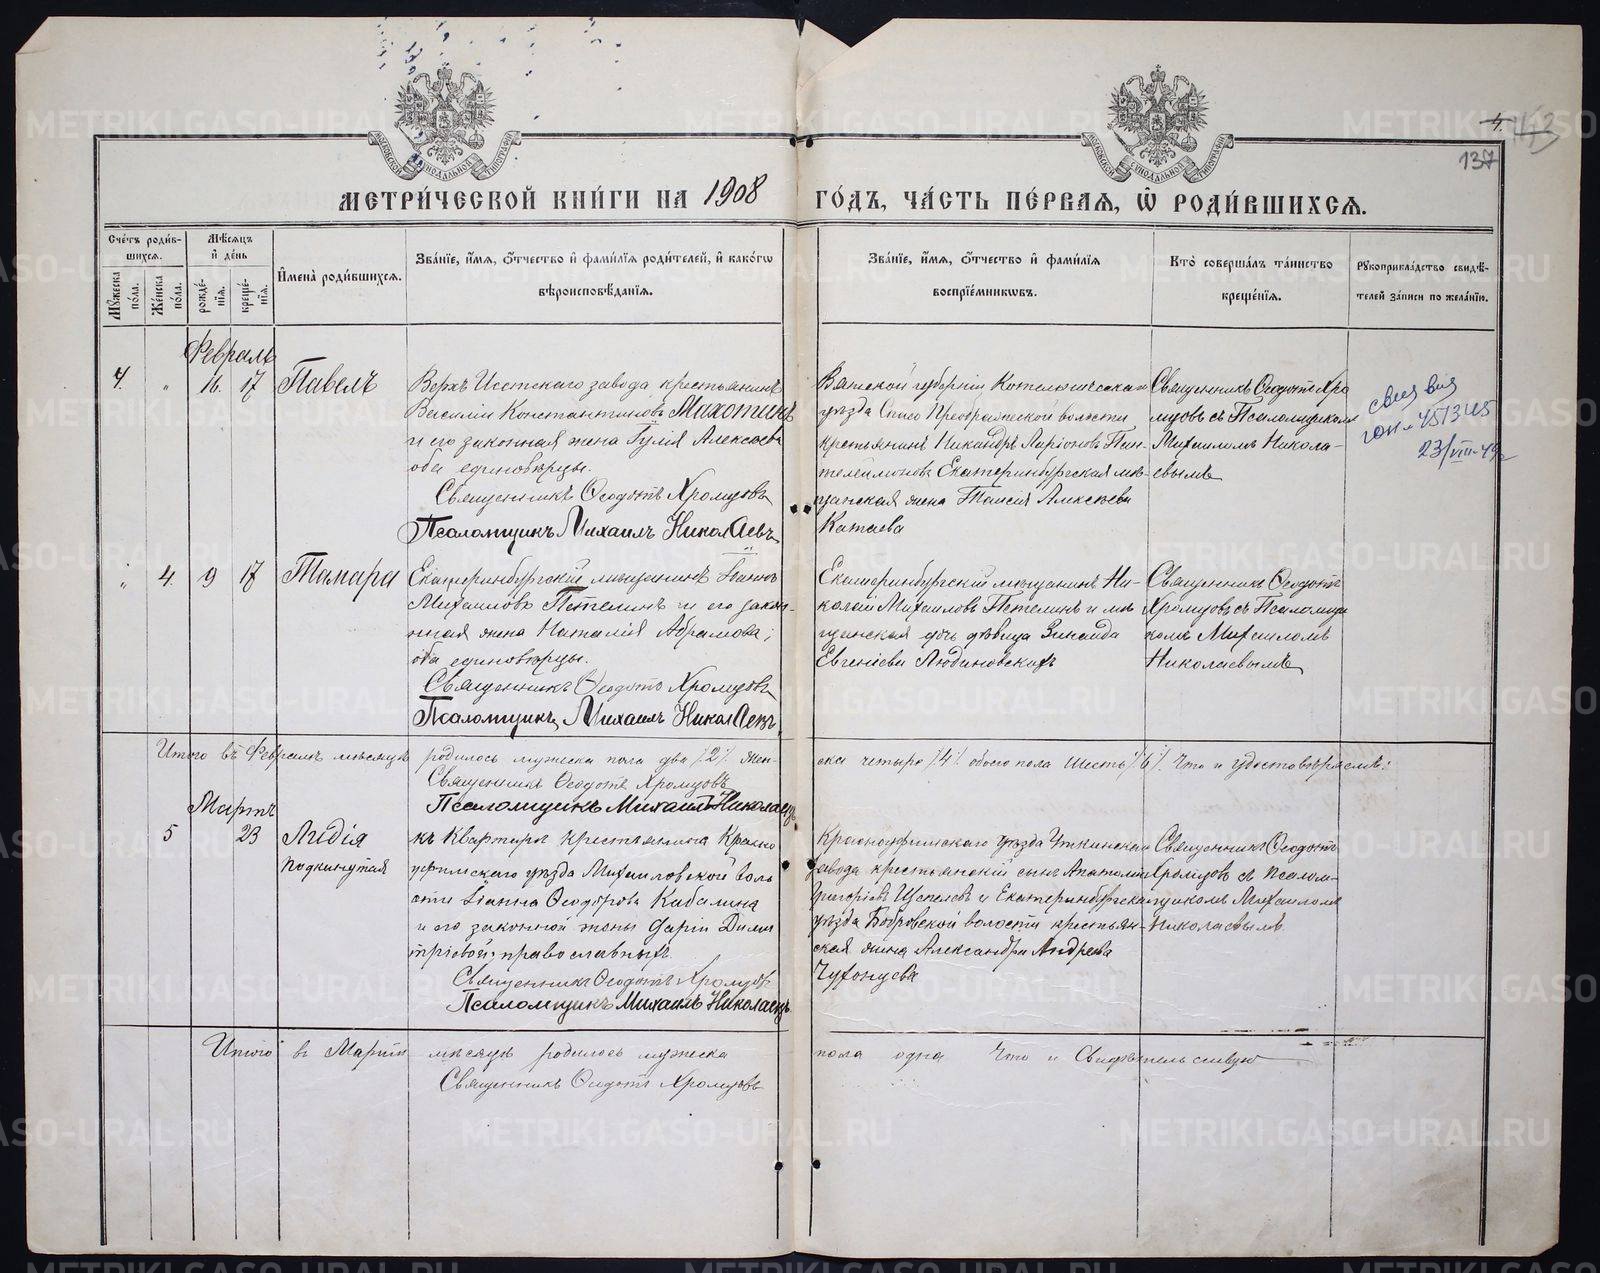 МЕТРИ́ЧЕСКОЙ КНИ́ГИ НА 1908 ГО́ДЪ, ЧА́СТЬ ПЕ́РВАЯ, Ѽ РОДИ́ВШИХСѦ.
137
Сче́тъ роди́в-
шихсѧ.
Мꙋ́жеска по́ла.
Же́нска по́ла.
Мѣ́сѧцъ
и҆ де́нь
рожде́нїѧ.
креще́нїѧ.
И҆мена̀ роди́вшихсѧ.
Зва́нїе, и҆́мѧ, ѻ҆́тчество и҆ фами́лїѧ роди́телей, и҆ како́гѡ
вѣроисповѣ́данїѧ.
Зва́нїе, и҆́мѧ, ѻ҆́тчество и҆ фами́лїѧ
воспрїе́мникѡвъ.
Кто̀ соверша́лъ та́инство
креще́нїѧ.
Рꙋкоприкла́дство свидѣ́-
телей за́писи по жела́нїю.
Февраль
4. " 16. 17 Павелъ
Верхъ Исетскаго завода крестьянинъ
Василій Константиновъ Махотинъ
и его законная жена Юлія Алексѣева
оба единовѣрцы.
Священникъ Ѳеодотъ Хромцовъ
Псаломщикъ Михаилъ Николаевъ
Вятской губерніи Котельническаго
уѣзда Спасо Преображенской волости
крестьянинъ Никандръ Ларіоновъ Пан-
телеймоновъ Екатеринбургская мѣ-
щанская жена Таисія Алексѣева
Катаева
Священникъ Ѳеодотъ Хро
мцовъ съ Псаломщикомъ
Михаиломъ Никола-
евымъ
23/VIII-49
" 4. 9 17 Тамара
Екатеринбургскій мѣщанинъ Іоаннъ
Михаиловъ Петелинъ и его закон-
ная жена Наталія Абрамова;
оба единовѣрцы.
Священникъ Ѳеодотъ Хромцовъ
Псаломщикъ Михаилъ Николаевъ
Екатеринбургскій мѣщанинъ Ни-
колай Михаиловъ Петелинъ и мѣ
щанская дочь дѣвица Зинаида
Евгеніева Людиновсковъ
Священникъ Ѳеодотъ
Хромцовъ съ Псаломщи
комъ Михаиломъ
Николаевымъ
Итого въ Февралѣ мѣсяцѣ родилось мужеска пола два /2/. жен-
ска четыре /4/. обоего пола шесть /6/. Что и удостовѣряемъ:
Священникъ Ѳеодотъ Хромцовъ
Псаломщикъ Михаилъ Николаевъ
Мартъ
5 23 Лидія
подкинутая
къ квартирѣ крестьянина Красно
уфимскаго уѣзда Михаиловской воло
сти Іоанна Ѳеодорова Кабалина
и его законной жены Даріи Дими
тріевой; православныхъ.
Священникъ Ѳеодотъ Хромцовъ
Псаломщикъ Михаилъ Николаевъ
Красноуфимскаго уѣзда Уткинскаго
завода крестьянскій сынъ Анатолій
Григоріевъ Щепелевъ и Екатеринбургскаго
уѣзда Бобровской волости крестьян-
ская жена Александра Андреева
Чухонцева
Священникъ Ѳеодотъ
Хромцовъ съ Псалом-
щикомъ Михаиломъ
Николаевымъ
Итого въ Мартѣ мѣсяцѣ родилось мужеска пола одна Что и Свидѣтельствую
Священникъ Ѳеодотъ Хромцовъ
METRIKI.GASO-URAL.RU